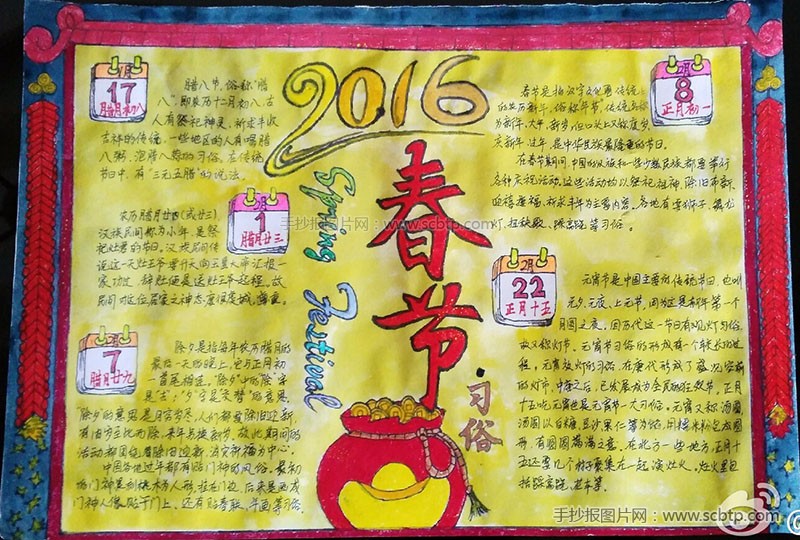 2016
Spring Festival
春节
习俗
17
腊月初八
腊八节,俗称"腊
八",即农历十二月初八,古
人有祭祀神灵、祈求丰收
吉祥的传统,一些地区的人有喝腊
八粥,泡腊八蒜的习俗。在传统
节日中,有"三元五腊"的说法。
1
腊月廿三
农历腊月廿四(或廿三)
汉族民间称为小年,是祭
祀灶君的节日。汉族民间传
说这一天灶王爷要升天向玉皇大帝汇报一
家功过,辞灶便是送灶王爷起程,故
民间对这位居家之神态度很虔诚
7
腊月廿九
除夕是指每年农历腊月的
最后一天的晚上,它与正月初一
首尾相连。"除夕"中的"除"字
是"去;"夕"字是"交替"的意思,
除夕的意思是月穷岁尽,人们都要除旧迎新,
有旧岁至此而除,来年另换新岁,故此期间的
活动都围绕着除旧迎新,消灾祈福为中心
中国各地过年都有贴门神的风俗。最初
的门神是刻桃木为人形,挂在门边,后来是画成
门神人像贴于门上。还有贴春联、年画等习俗
2月
8
正月初一
春节是指汉字文化圈传统
的农历新年,俗称年节,传统名称
为新年、大年、新岁,但口头上又称度岁、
庆新年、过年,是中华民族最隆重的节日。
在春节期间,中国的汉族和一些少数民族都要举行
各种庆祝活动,这些活动均以祭祀祖神、除旧布新、
迎禧接福、祈求丰年为主要内容。各地有耍狮子、舞龙
灯、扭秧歌、踩高跷等习俗。
2月
22
正月十五
元宵节是中国主要的传统节日,也叫
元夕、元夜、上元节,因为这是新年第一个
月圆之夜。因历代这一节日有观灯习俗,
故又称灯节。元宵节习俗的形成有一个较长的过
程,元宵放灯的习俗,在唐代形成了盛况空前
的灯市,中唐之后,已发展成为全民的狂欢节。正月
十五吃元宵也是元宵节一大习俗。元宵又称汤圆,
汤圆以白糖、豆沙果仁等为馅,用糯米粉包成圆
形,有团圆美满之意。在北方一些地方,正月十
五还要几个村子聚集在一起演灶火。灶火里包
括踩高跷
手抄报图片网:www.scbtp.com
手抄报图片网:www.scbtp.com